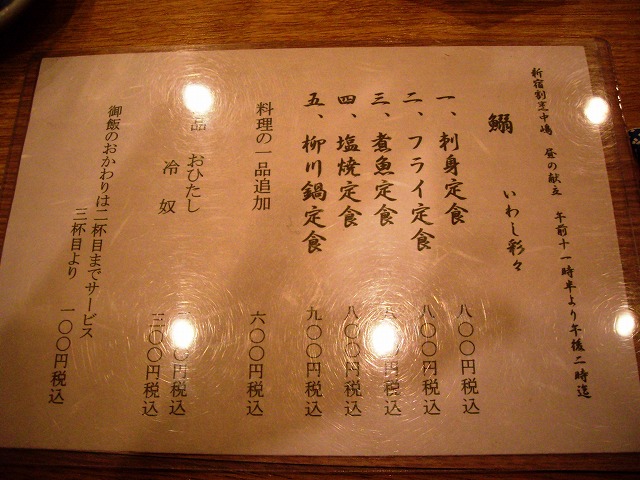 新宿割烹中嶋 昼の献立 午前十一時半より午後二時迄
鰯 いわし彩々
一、刺身定食 八〇〇円税込
二、フライ定食 八〇〇円税込
三、煮魚定食 〇〇円税込
四、塩焼定食 八〇〇円税込
五、柳川鍋定食 九〇〇円税込
料理の一品追加 六〇〇円税込
品 おひたし 〇〇円税込
冷奴 三〇〇円税込
御飯のおかわりは二杯目までサービス
三杯目より 一〇〇円税込